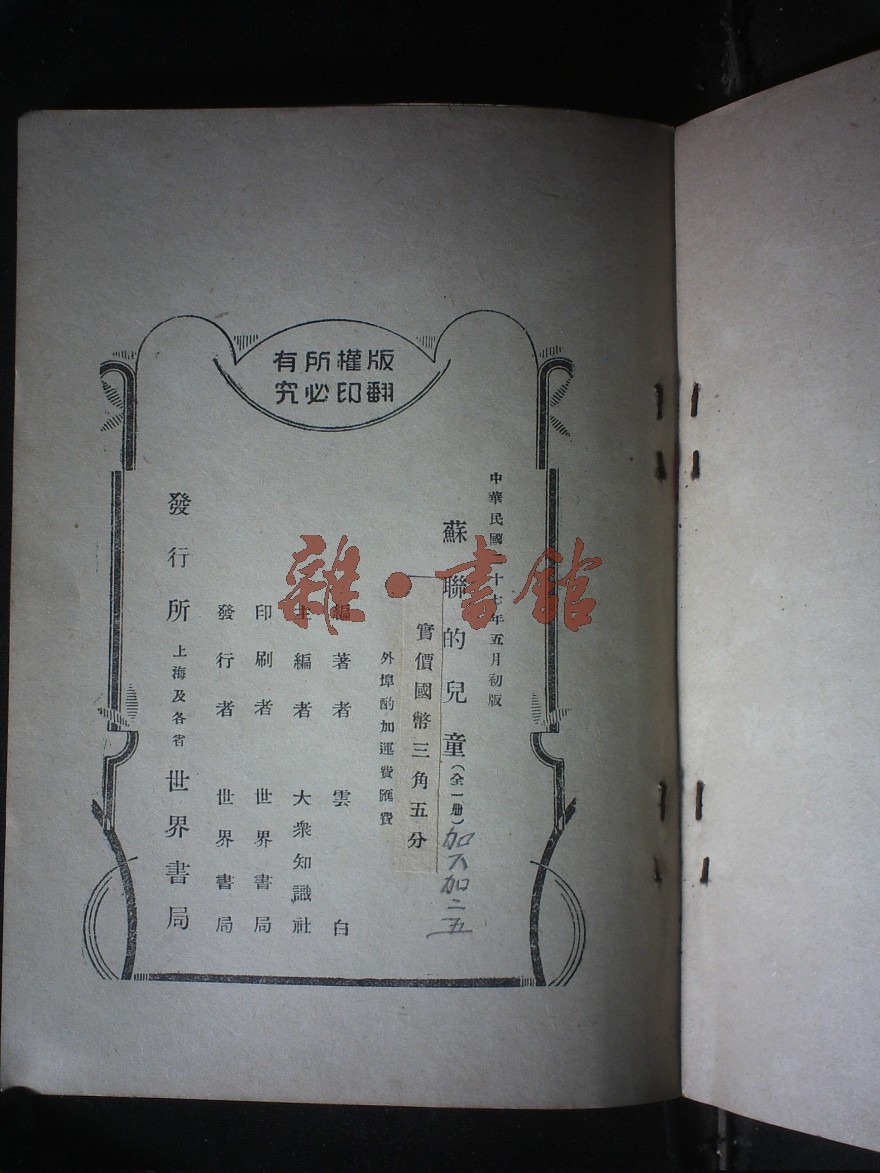 版權所有
翻印必究
中華民國二十七年五月初版
蘇聯的兒童(全一册)
加不加二五
實價國幣三角五分
外埠酌加運費匯費
編著者 雲白
主編者 大衆知識社
印刷者 世界書局
發行者 世界書局
發行所 上海及各省 世界書局
雜·書館